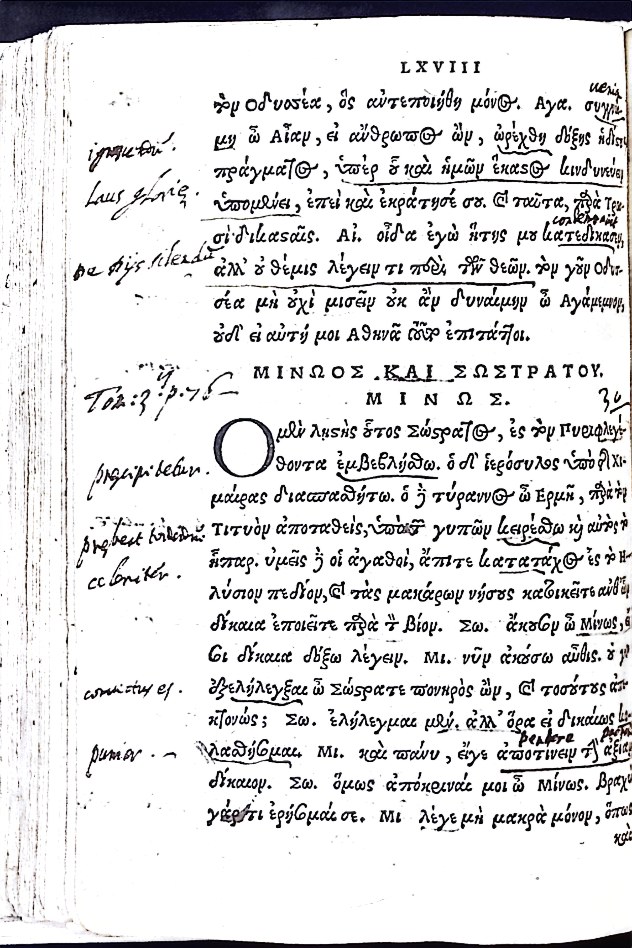 LXVIII
τὸν Οδυσσέα, ὃς ἀντεποιήθη μόνος. Αγα. συγγνώ
μη ὦ Αἶαν, εἰ ἄνθρωπος ὢν, ὠρέχθη δόξης ἡδίστου
πράγματος, ὑπὲρ οὗ καὶ ἡμῶν ἕκαστος κινδυνεύειν
ὑπομένει, ἐπεὶ καὶ ἐκράτησέ σου. καὶ ταῦτα, παρὰ Τρω
σὶ δικασταῖς. Αἰ. οἶδα ἐγὼ ἥτις μου κατεδίκασεν,
ἀλλ' οὐ θέμις λέγειν τι περὶ τῶν θεῶν. τὸν γοῦν Οδυσ-
σέα μὴ οὐχὶ μισεῖν οὐκ ἂν δυναίμην ὦ Αγάμεμνον,
οὐδ' εἰ αὐτή μοι Αθηνᾶ τοῦτο ἐπιτάττοι.
ΜΙΝΩΟΣ ΚΑΙ ΣΩΣΤΡΑΤΟΥ.
ΜΙΝΩΣ.
Ο μὲν ληστὴς οὗτος Σώστρατος, ἐς τὸν Πυριφλεγέ-
θοντα ἐμβεβλήσθω. ὁ δ' ἱερόσυλος ὑπὸ τῆς Χι-
μαίρας διασπασθήτω. ὁ δὲ τύραννος ὦ Ερμῆ, παρὰ τὸν
Τιτυὸν ἀποταθεὶς, ὑπὸ τῶν γυπῶν κειρέσθω καὶ αὐτὸς τὸ
ἧπαρ. ὑμεῖς δὲ οἱ ἀγαθοὶ, ἄπιτε κατατάχος ἐς τὸ Η-
λύσιον πεδίον, καὶ τὰς μακάρων νήσους κατοικεῖτε ἀνθ' ὧν
δίκαια ἐποιεῖτε παρὰ τὸν βίον. Σω. ἄκουσον ὦ Μίνως, εἴ
σοι δίκαια δόξω λέγειν. Μι. νῦν ἀκούσω αὖθις. οὐ γὰρ
ἐξελήλεγξαι ὦ Σώστρατε πονηρὸς ὢν, καὶ τοσούτους ἀπε-
κτονώς; Σω. ἐλήλεγμαι μὲν. ἀλλ' ὅρα εἰ δικαίως κο-
λασθήσομαι. Μι. καὶ πάνυ, εἴγε ἀποτίνειν τὴν ἀξίαν
δίκαιον. Σω. ὅμως ἀπόκριναί μοι ὦ Μίνως. βραχὺ
γάρ τι ἐρήσομαί σε. Μι λέγε μὴ μακρὰ μόνον, ὅπως
καὶ
Laus gloriæ.
celeriter.
convictus es.
punior.